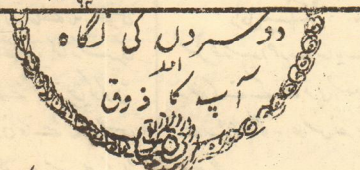 ۹۲
دوسروں کی نگاہ
اور
آپ کا ذوق